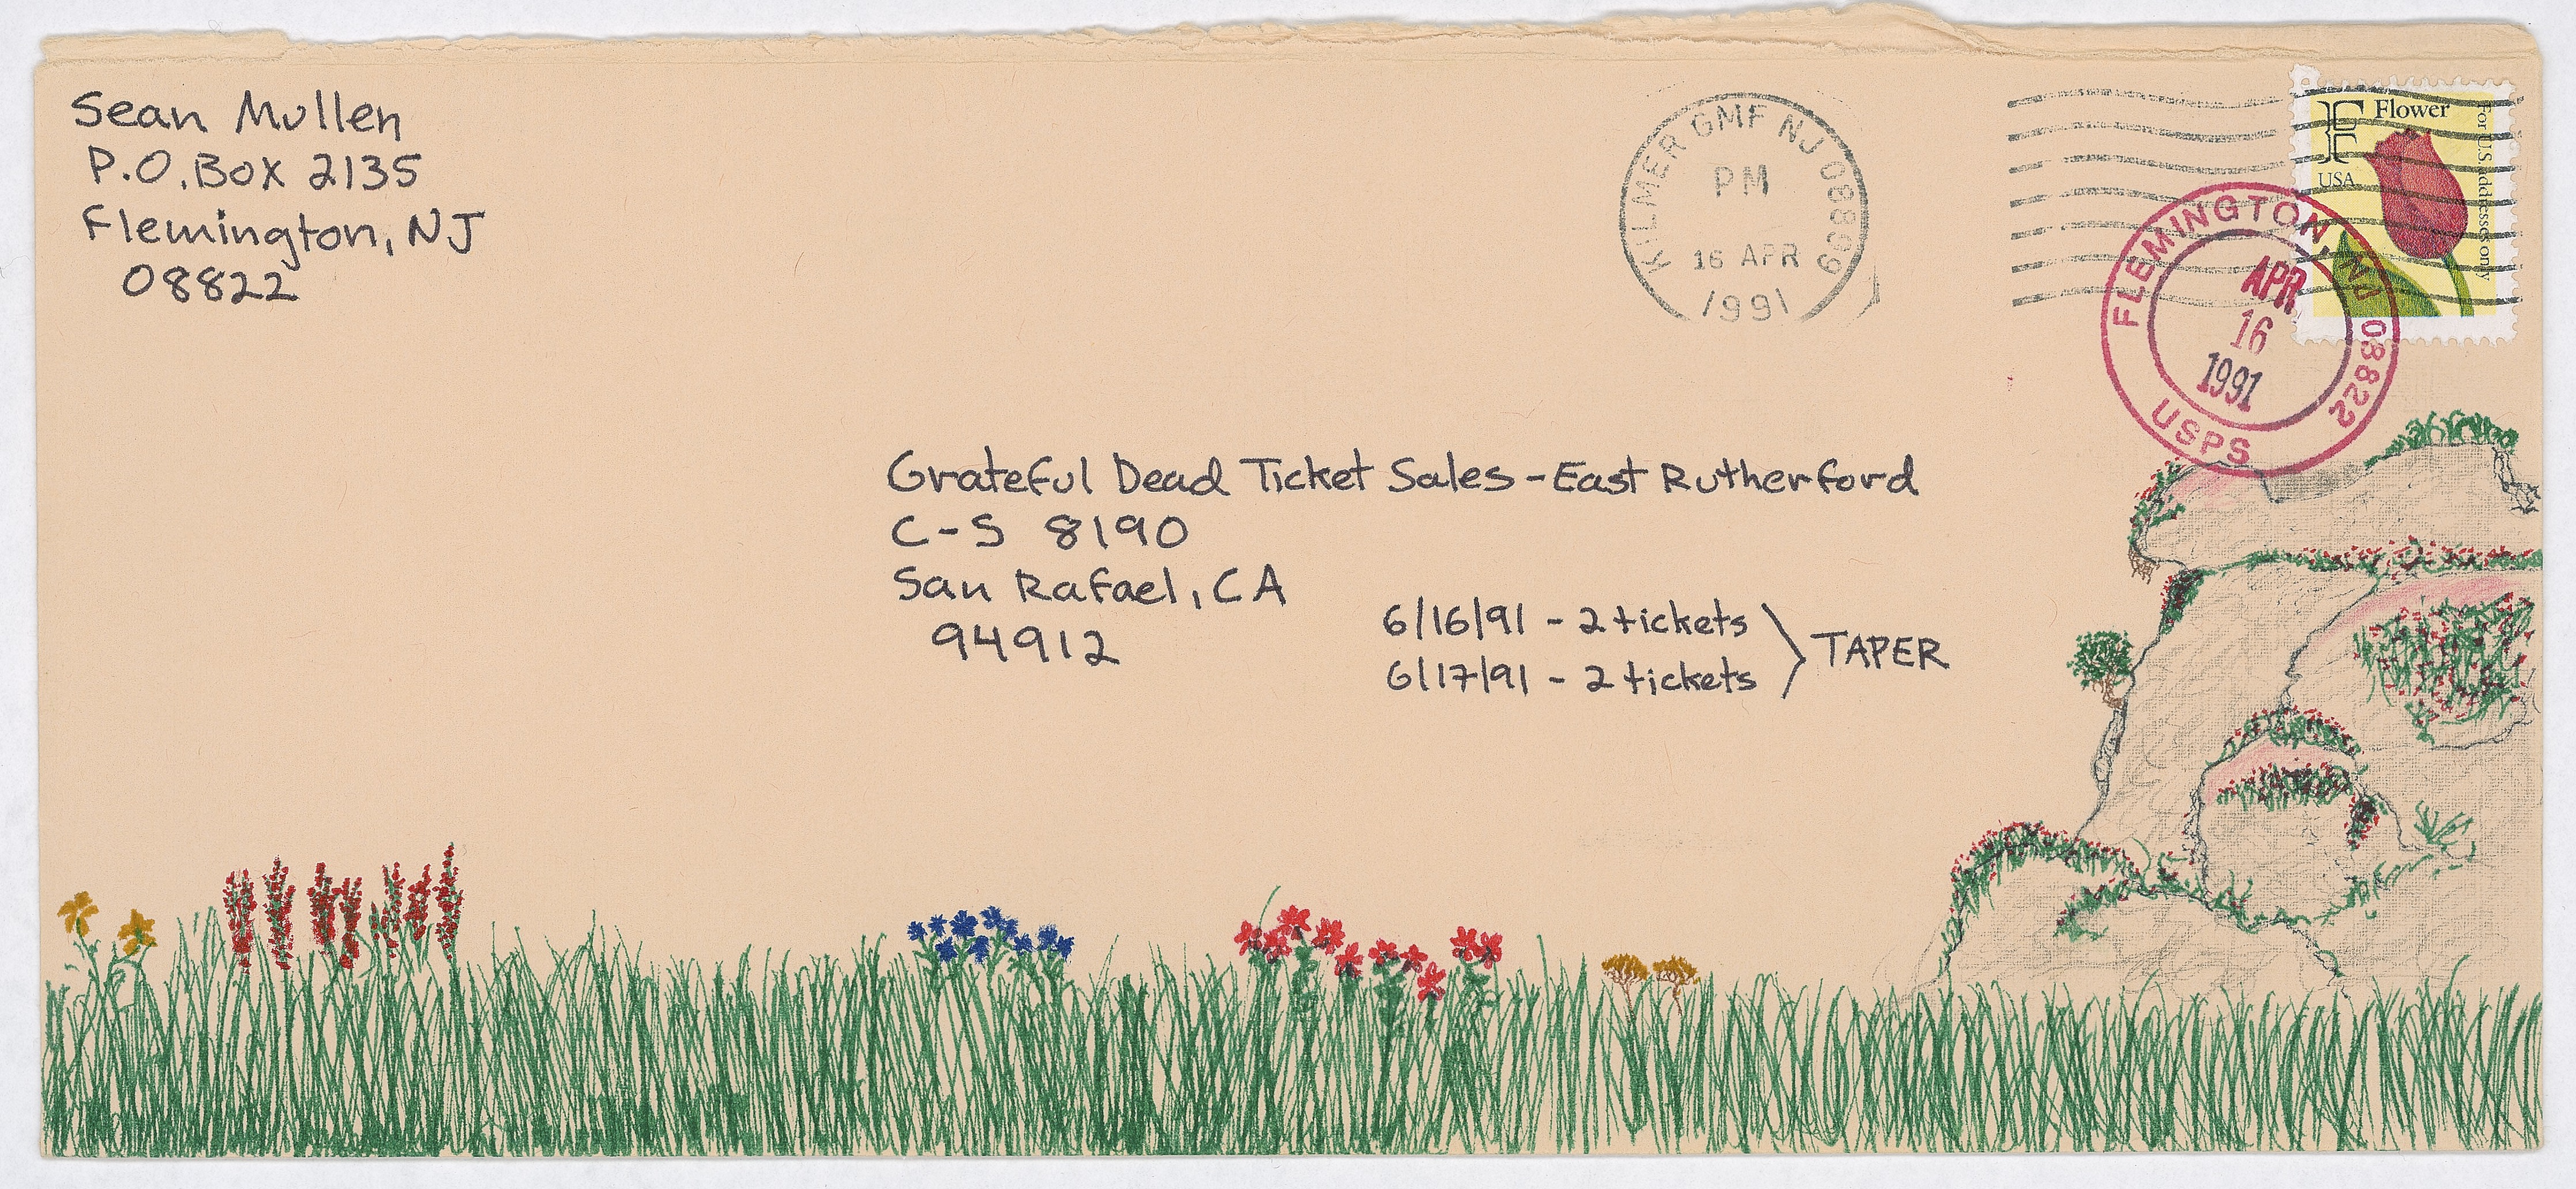 Sean Mullen
P.O. Box 2135
Flemington, NJ
08822
KILMER GMF NJ 08899
PM
16 APR
1991
F Flower
USA
For U.S. addresses only
FLEMINGTON, NJ 08822
APR
16
1991
USPS
Grateful Dead Ticket Sales - East Rutherford
C-S 8190
San Rafael, CA
94912
6/16/91 - 2 tickets
6/17/91 - 2 tickets
TAPER